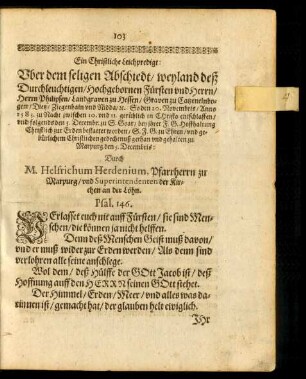 103
Ein Christliche Leichpredigt:
Vber dem seligen Abschiedt / weyland deß
Durchleuchtigen / Hochgebornen Fürsten vnd Herrn /
Herrn Philipsen / Landgrauen zu Hessen / Grauen zu Catzenelnbo-
gen / Dietz / Ziegenhain vnd Nidda / ꝛc. So den 20. Nouembris / Anno
1583. zu Nacht zwischen 10. vnd 11. gentzlich in Christo entschlaffen /
vnd folgends den 3. Decembr. zu S. Goar / bey jhrer F. G. Hoffhaltung
Christlich zur Erden bestattet worden / S. F. G. zu Ehren / vnd ge-
bürlichem Christlichen gedechtnuß gethan vnd gehalten zu
Marpurg den 3. Decembris:
Durch
M. Helfrichum Herdenium. Pfarrherrn zu
Marpurg / vnd Superintendenten der Kir-
chen an der Löhn.
Psal. 146.
VErlasset euch nit auff Fürsten / sie sind Men-
schen / die können ja nicht helffen.
Denn deß Menschen Geist muß davon /
vnd er muß wider zur Erden werden / Als denn sind
verlohren alle seine anschlege.
Wol dem / deß Hülffe der GOtt Jacob ist / deß
Hoffnung auff den HERRN seinen GOtt stehet.
Der Himmel / Erden / Meer / vnd alles was da-
rinnen ist / gemacht hat / der glauben helt ewiglich.
Ihr